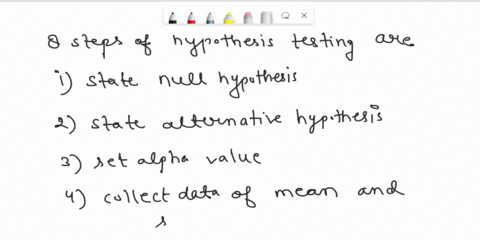 8 steps of hypothesis testing are
1) state null hypothesis
2) state alternative hypothesis
3) set alpha value
4) collect data of mean and
s